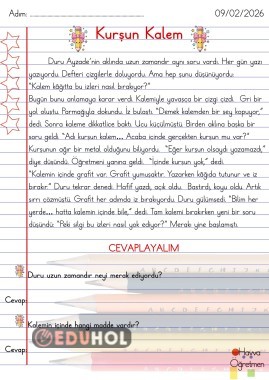 Adım: 09/02/2026
Kurşun Kalem
Duru Ayzade'nin aklında uzun zamandır aynı soru vardı. Her gün yazı
yazıyordu. Defteri çizgilerle doluyordu. Ama hep şunu düşünüyordu:
"Kalem kâğıtta bu izleri nasıl bırakıyor?"
Bugün bunu anlamaya karar verdi. Kalemiyle yavaşça bir çizgi çizdi. Gri bir
yol oluştu. Parmağıyla dokundu. İz bulaştı. "Demek kalemden bir şey kopuyor,"
dedi. Sonra kaleme dikkatlice baktı. Ucu küçülmüştü. Birden aklına başka bir
soru geldi. "Adı kurşun kalem... Acaba içinde gerçekten kurşun mu var?"
Kurşunun ağır bir metal olduğunu biliyordu. "Eğer kurşun olsaydı yazamazdı,"
diye düşündü. Öğretmeni yanına geldi. "İçinde kurşun yok," dedi.
"Kalemin içinde grafit var. Grafit yumuşaktır. Yazarken kâğıda tutunur ve iz
bırakır." Duru tekrar denedi. Hafif yazdı, açık oldu. Bastırdı, koyu oldu. Artık
sırrı çözmüştü. Grafit her adımda iz bırakıyordu. Duru gülümsedi. "Bilim her
yerde... hatta kalemin içinde bile," dedi. Tam kalemi bırakırken yeni bir soru
düşündü: "Peki silgi bu izleri nasıl yok ediyor?" Merak yine başlamıştı.
CEVAPLAYALIM
Duru uzun zamandır neyi merak ediyordu?
Cevap:
Kalemin içinde hangi madde vardır?
Cevap:
EDUHOL
Havva
Öğretmen